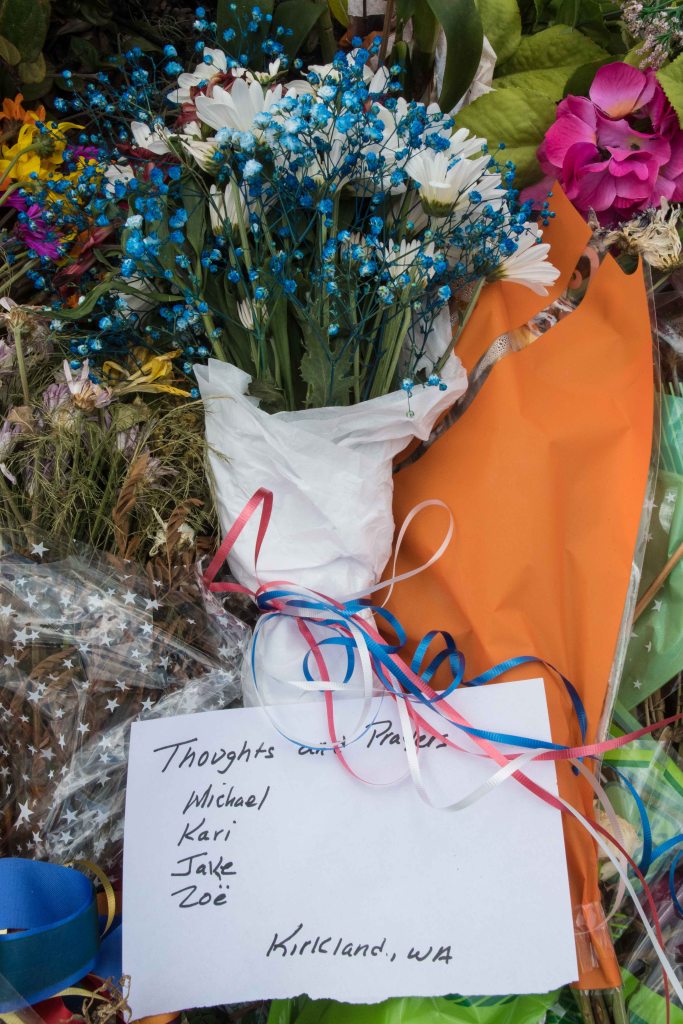 Thoughts and Prayers
Michael
Kari
Jake
Zoë
Kirkland., WA